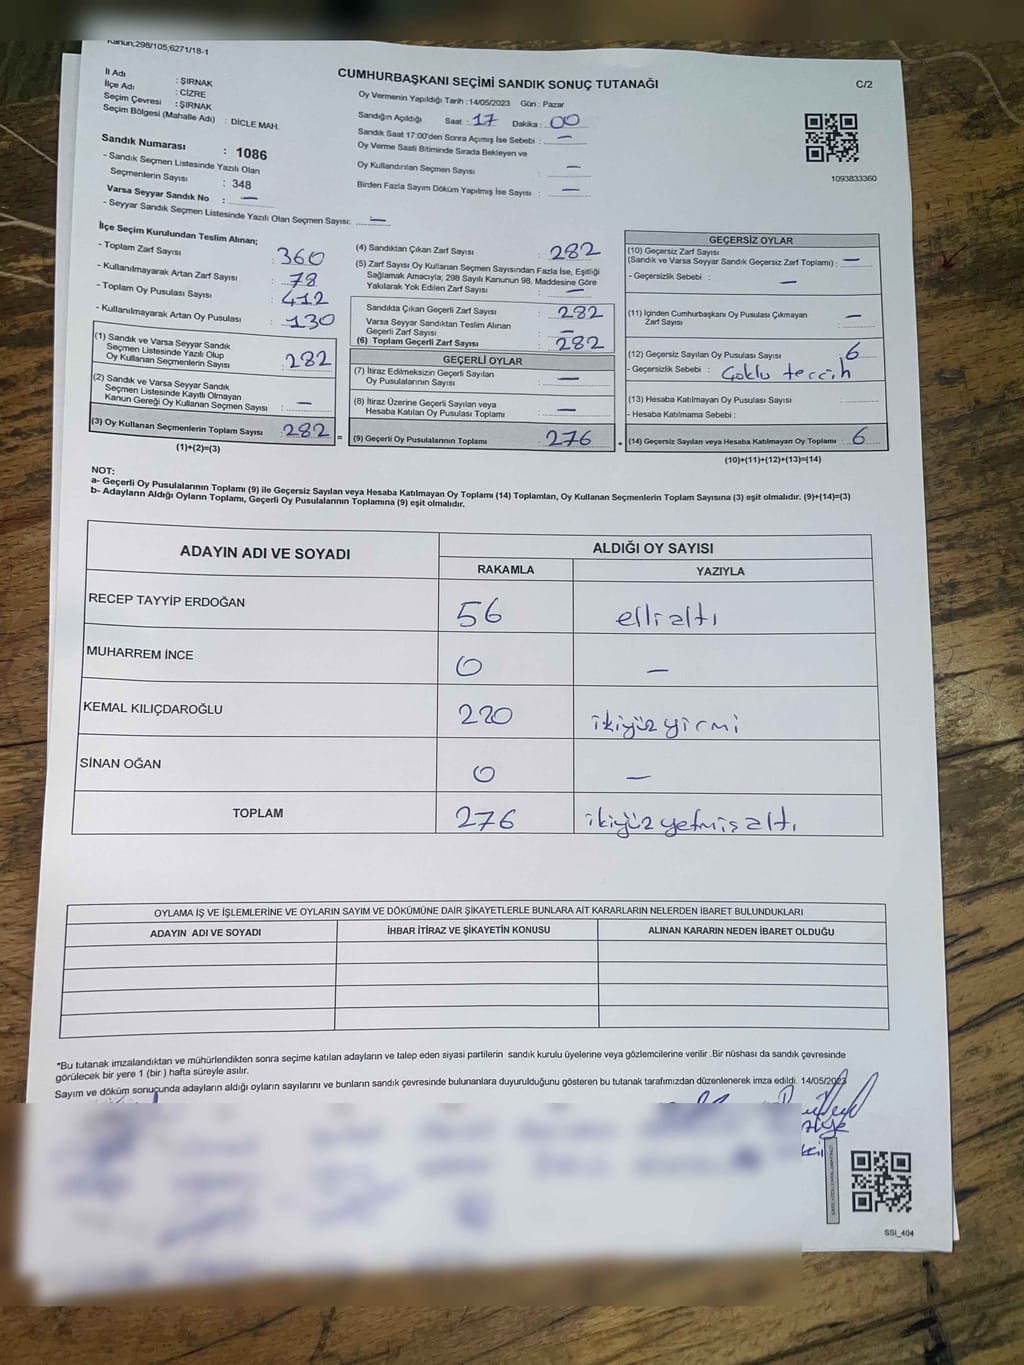 Kanun;298/105;6271/18-1
CUMHURBAŞKANI SEÇİMİ SANDIK SONUÇ TUTANAĞI
C/2
İl Adı : ŞIRNAK
İlçe Adı : CİZRE
Seçim Çevresi : ŞIRNAK
Seçim Bölgesi (Mahalle Adı) : DİCLE MAH.
Sandık Numarası : 1086
- Sandık Seçmen Listesinde Yazılı Olan
Seçmenlerin Sayısı : 348
Varsa Seyyar Sandık No : —
- Seyyar Sandık Seçmen Listesinde Yazılı Olan Seçmen Sayısı: —
Oy Vermenin Yapıldığı Tarih : 14/05/2023 Gün : Pazar
Sandığın Açıldığı Saat : 17 Dakika : 00
Sandık Saat 17:00'den Sonra Açımış İse Sebebi : —
Oy Verme Saati Bitiminde Sırada Bekleyen ve
Oy Kullandırılan Seçmen Sayısı : —
Birden Fazla Sayım Döküm Yapılmış İse Sayısı : —
1093833360
İlçe Seçim Kurulundan Teslim Alınan;
- Toplam Zarf Sayısı : 360
- Kullanılmayarak Artan Zarf Sayısı : 78
- Toplam Oy Pusulası Sayısı : 412
- Kullanılmayarak Artan Oy Pusulası : 130
(1) Sandık ve Varsa Seyyar Sandık
Seçmen Listesinde Yazılı Olup
Oy Kullanan Seçmenlerin Sayısı : 282
(2) Sandık ve Varsa Seyyar Sandık
Seçmen Listesinde Kayıtlı Olmayan
Kanun Gereği Oy Kullanan Seçmen Sayısı : —
(3) Oy Kullanan Seçmenlerin Toplam Sayısı : 282 =
(1)+(2)=(3)
(4) Sandıktan Çıkan Zarf Sayısı : 282
(5) Zarf Sayısı Oy Kullanan Seçmen Sayısından Fazla İse, Eşitliği
Sağlamak Amacıyla; 298 Sayılı Kanunun 98. Maddesine Göre
Yakılarak Yok Edilen Zarf Sayısı : —
Sandıkta Çıkan Geçerli Zarf Sayısı : 282
Varsa Seyyar Sandıktan Teslim Alınan
Geçerli Zarf Sayısı : —
(6) Toplam Geçerli Zarf Sayısı : 282
GEÇERLİ OYLAR
(7) İtiraz Edilmeksizin Geçerli Sayılan
Oy Pusulalarının Sayısı : —
(8) İtiraz Üzerine Geçerli Sayılan veya
Hesaba Katılan Oy Pusulası Toplamı : —
(9) Geçerli Oy Pusulalarının Toplamı : 276 +
GEÇERSİZ OYLAR
(10) Geçersiz Zarf Sayısı
(Sandık ve Varsa Seyyar Sandık Geçersiz Zarf Toplamı) : —
- Geçersizlik Sebebi : —
(11) İçinden Cumhurbaşkanı Oy Pusulası Çıkmayan
Zarf Sayısı : —
(12) Geçersiz Sayılan Oy Pusulası Sayısı : 6
- Geçersizlik Sebebi : Çoklu tercih
(13) Hesaba Katılmayan Oy Pusulası Sayısı :
- Hesaba Katılmama Sebebi :
(14) Geçersiz Sayılan veya Hesaba Katılmayan Oy Toplamı : 6
(10)+(11)+(12)+(13)=(14)
NOT:
a- Geçerli Oy Pusulalarının Toplamı (9) ile Geçersiz Sayılan veya Hesaba Katılmayan Oy Toplamı (14) Toplamları, Oy Kullanan Seçmenlerin Toplam Sayısına (3) eşit olmalıdır. (9)+(14)=(3)
b- Adayların Aldığı Oyların Toplamı, Geçerli Oy Pusulalarının Toplamına (9) eşit olmalıdır.
ADAYIN ADI VE SOYADI
ALDIĞI OY SAYISI
RAKAMLA YAZIYLA
RECEP TAYYİP ERDOĞAN 56 elli altı
MUHARREM İNCE 0 —
KEMAL KILIÇDAROĞLU 220 ikiyüz yirmi
SİNAN OĞAN 0 —
TOPLAM 276 ikiyüz yetmiş altı
OYLAMA İŞ VE İŞLEMLERİNE VE OYLARIN SAYIM VE DÖKÜMÜNE DAİR ŞİKAYETLERLE BUNLARA AİT KARARLARIN NELERDEN İBARET BULUNDUKLARI
ADAYIN ADI VE SOYADI İHBAR İTİRAZ VE ŞİKAYETİN KONUSU ALINAN KARARIN NEDEN İBARET OLDUĞU
*Bu tutanak imzalandıktan ve mühürlendikten sonra seçime katılan adayların ve talep eden siyasi partilerin sandık kurulu üyelerine veya gözlemcilerine verilir .Bir nüshası da sandık çevresinde
görülecek bir yere 1 (bir ) hafta süreyle asılır.
Sayım ve döküm sonucunda adayların aldığı oyların sayılarını ve bunların sandık çevresinde bulunanlara duyurulduğunu gösteren bu tutanak tarafımızdan düzenlenerek imza edildi. 14/05/2023
SSI_404